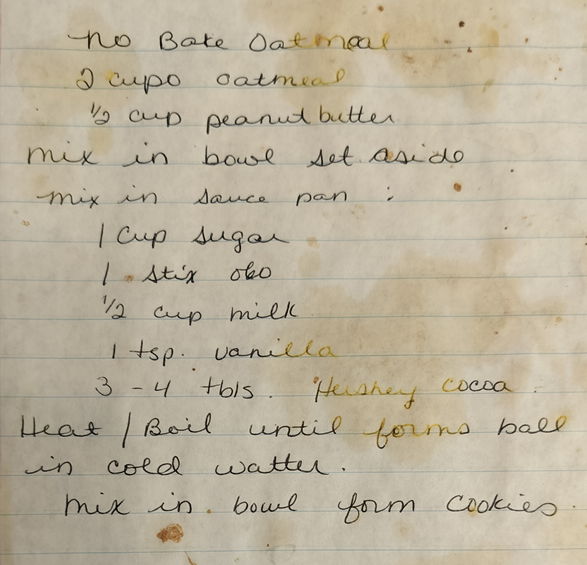 No Bake Oatmeal
2 cups oatmeal
1/2 cup peanut butter
mix in bowl set aside
mix in sauce pan :
1 cup sugar
1 stix olo
1/2 cup milk
1 tsp. vanilla
3 - 4 tbls. Hershey cocoa
Heat / Boil until forms ball
in cold watter.
mix in bowl form cookies